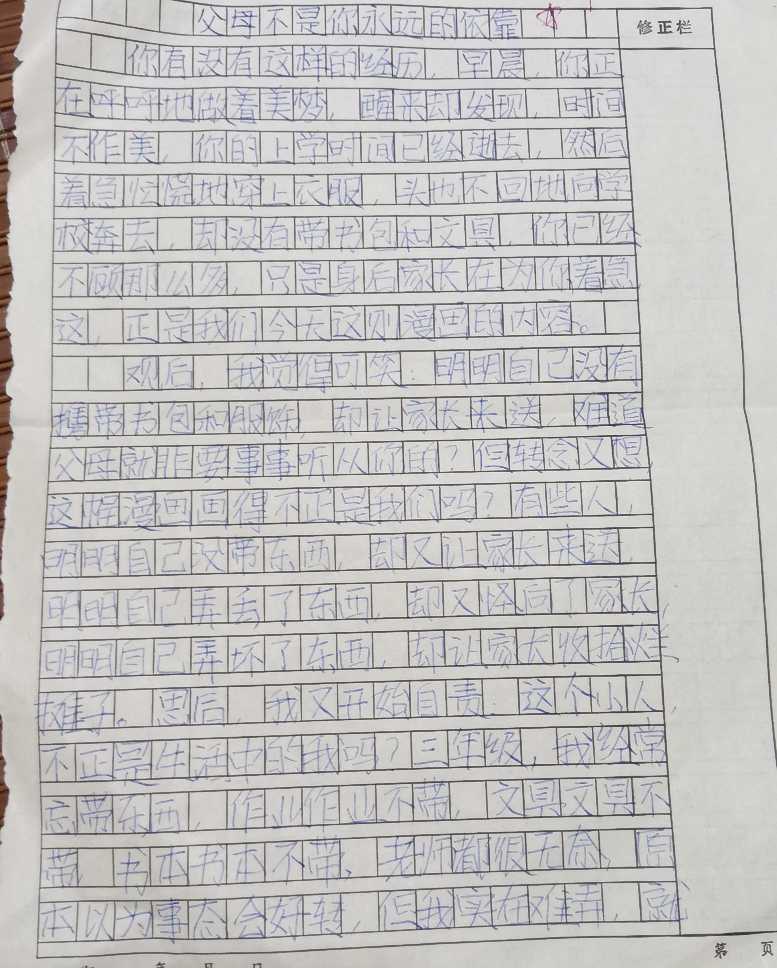 父母不是你永远的依靠
修正栏
你有没有这样的经历，早晨，你正
在呼呼地做着美梦，醒来却发现，时间
不作美，你的上学时间已经逝去，然后
着急忙慌地穿上衣服，头也不回地向学
校奔去，却没有带书包和文具，你已经
不顾那么多，只是身后家长在为你着急
这，正是我们今天这则漫画的内容。
观后，我觉得可笑：明明自己没有
携带书包和服饰，却让家长来送，难道
父母就非要事事听从你的？但转念又想，
这幅漫画画得不正是我们吗？有些人，
明明自己没带东西，却又让家长来送，
明明自己弄丢了东西，却又怪向了家长，
明明自己弄坏了东西，却让家长收拾烂
摊子。思后，我又开始自责：这个小人，
不正是生活中的我吗？三年级，我经常
忘带东西，作业作业不带，文具文具不
带，书本书本不带，老师都很无奈，原
本以为事态会好转，但我实在难弄，就
第 页